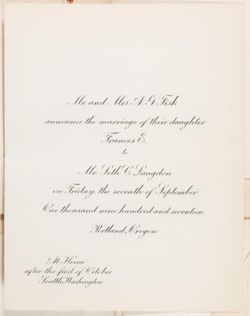 Mr. and Mrs. A. G. Fish
announce the marriage of their daughter
Frances E.
to
Mr. Seth C. Langdon
on Friday, the seventh of September
One thousand nine hundred and seventeen
Portland, Oregon
At Home
after the first of October
Seattle, Washington